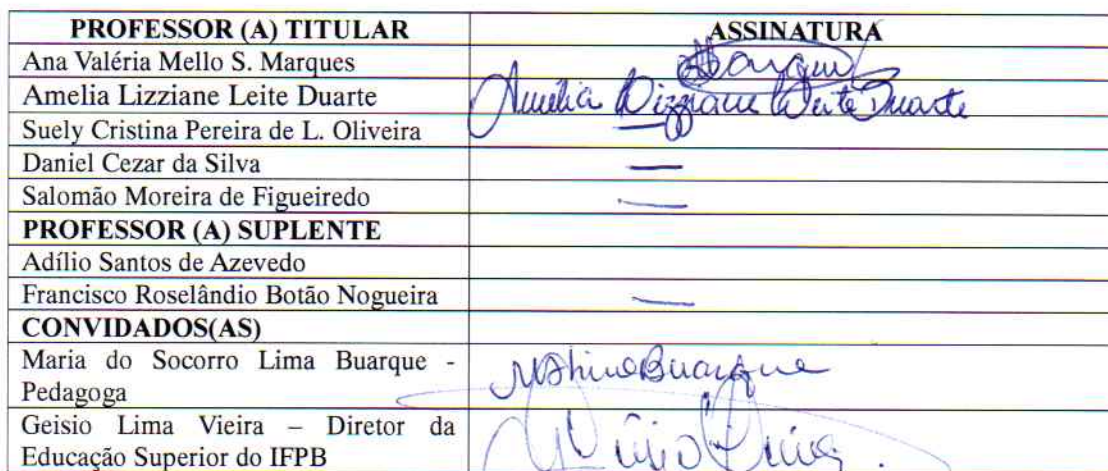 PROFESSOR (A) TITULAR ASSINATURA
Ana Valéria Mello S. Marques Marques
Amelia Lizziane Leite Duarte Amélia Lizziane Leite Duarte
Suely Cristina Pereira de L. Oliveira —
Daniel Cezar da Silva —
Salomão Moreira de Figueiredo —
PROFESSOR (A) SUPLENTE
Adílio Santos de Azevedo
Francisco Roselândio Botão Nogueira —
CONVIDADOS(AS)
Maria do Socorro Lima Buarque - Buarque
Pedagoga
Geisio Lima Vieira – Diretor da
Educação Superior do IFPB